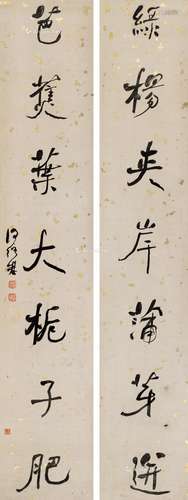 綠楊夾岸蒲芽迸
芭蕉葉大梔子肥
何紹基